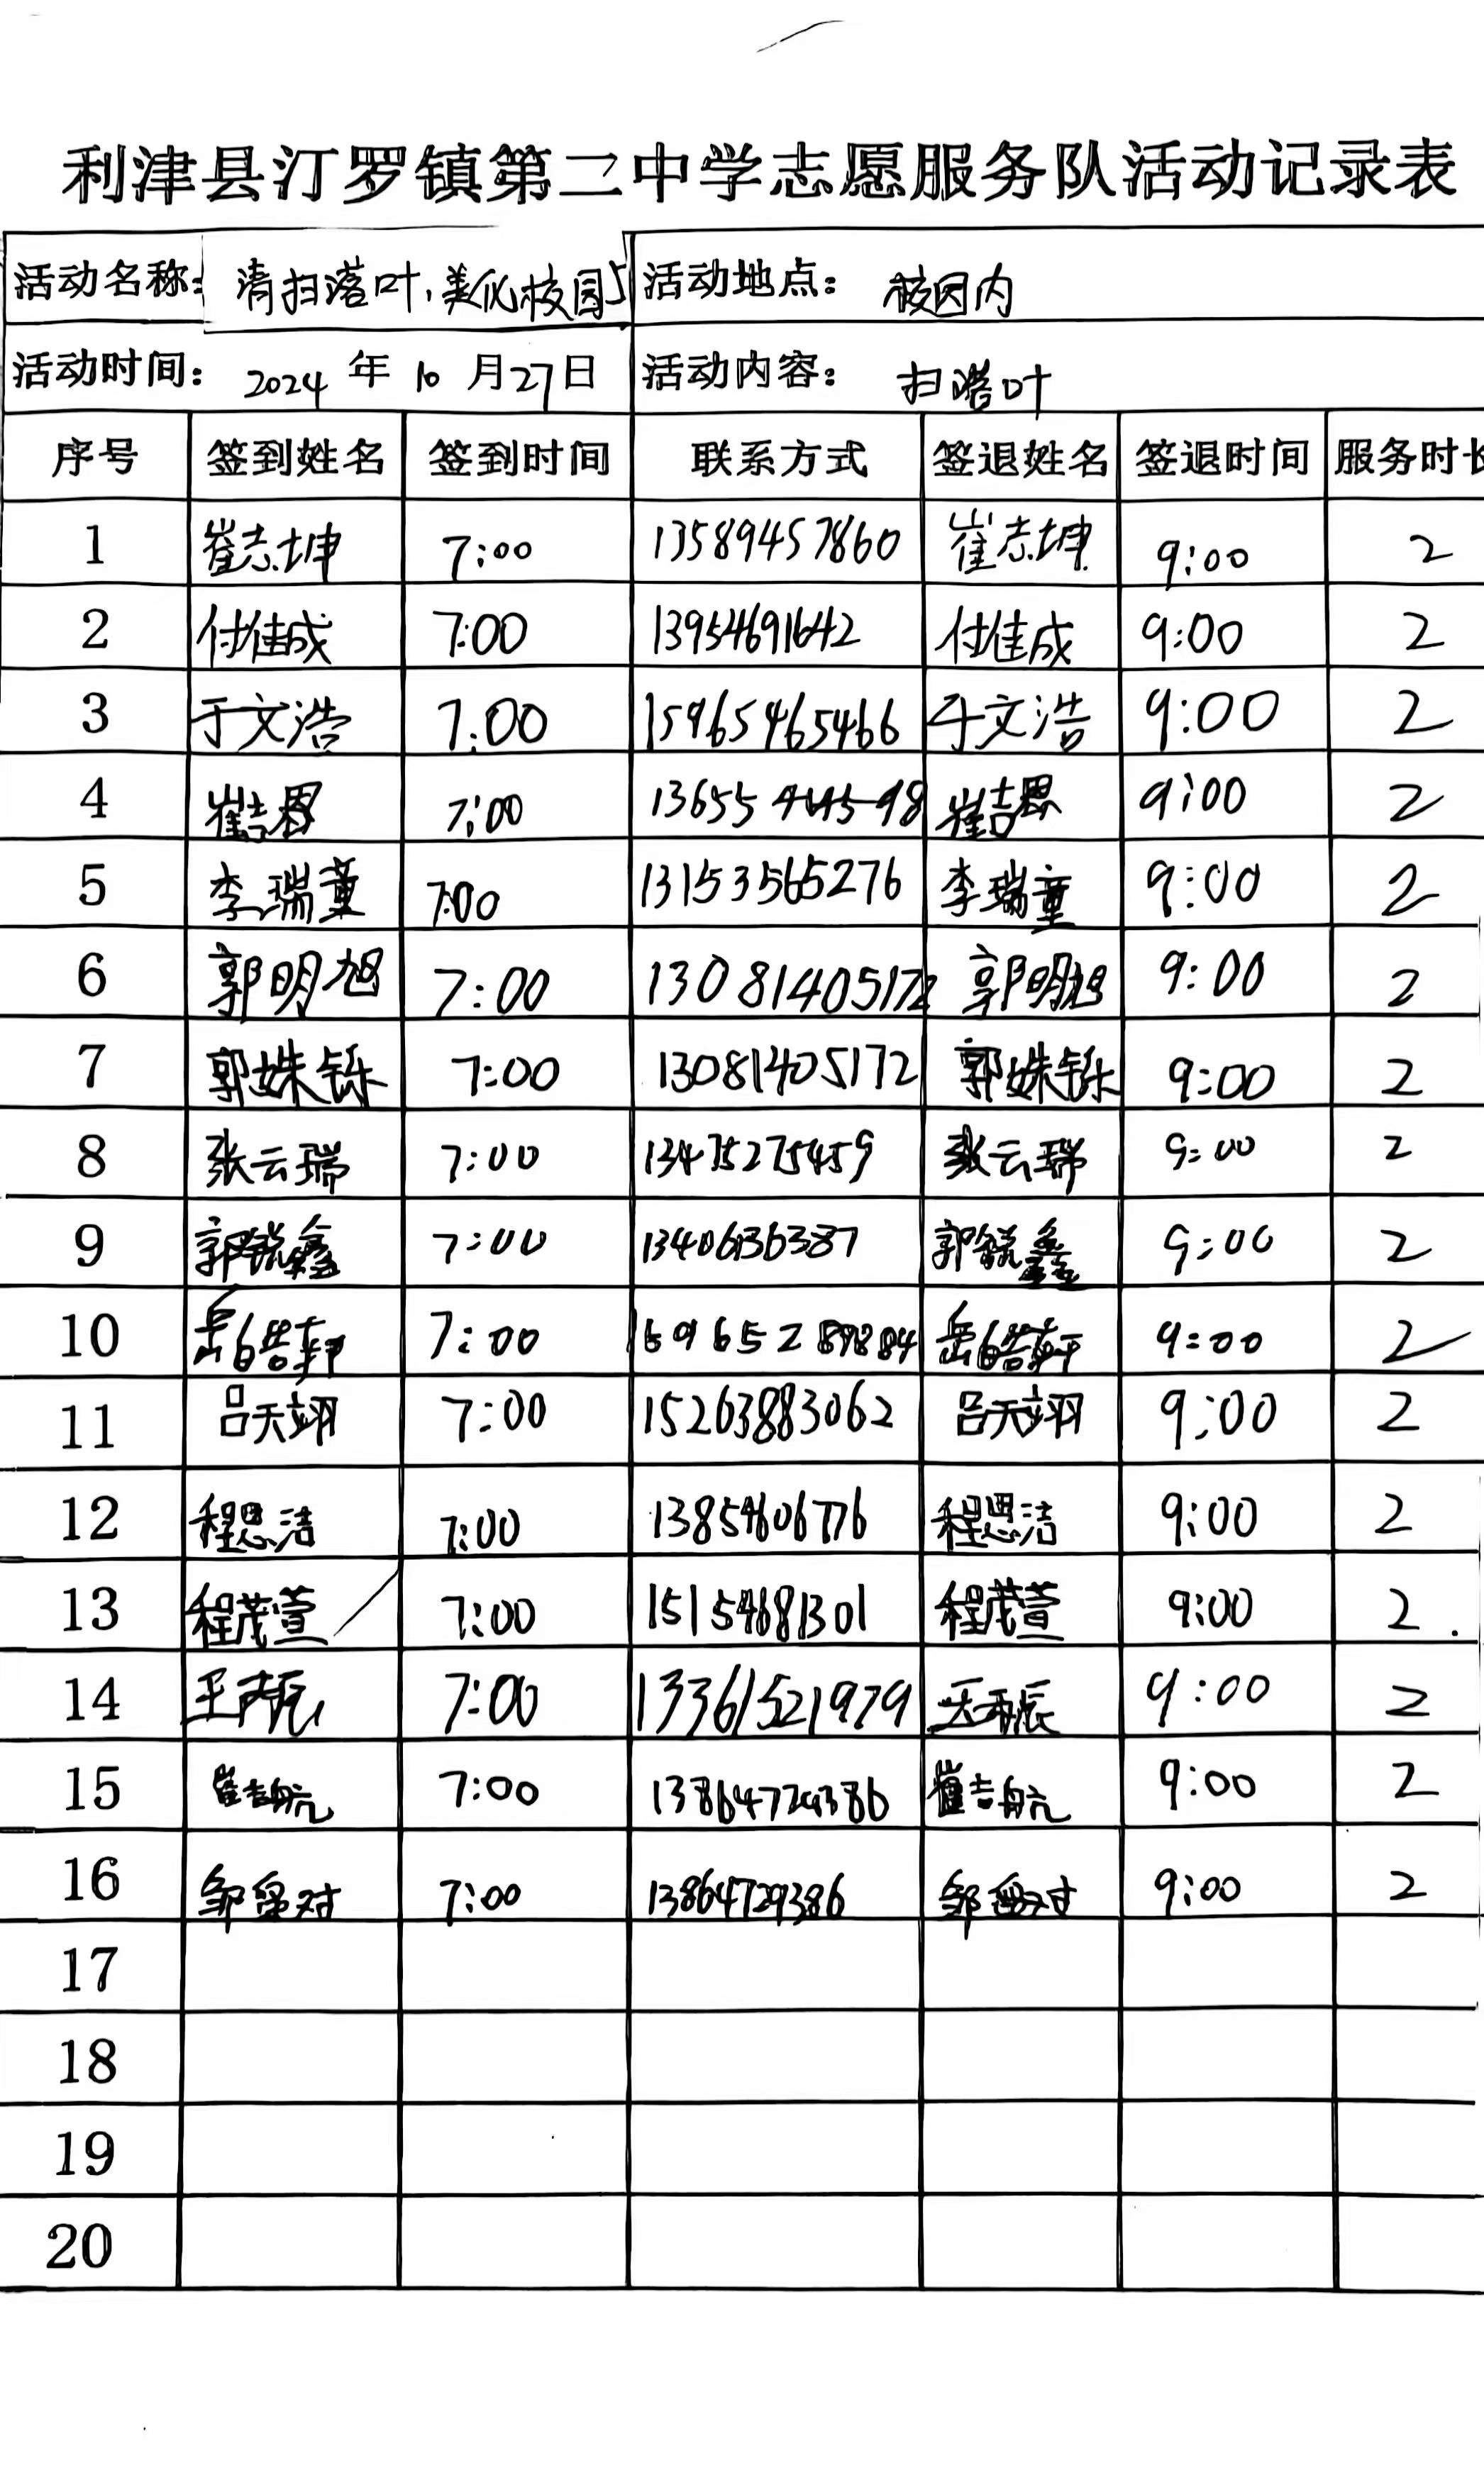 利津县汀罗镇第二中学志愿服务队活动记录表
活动名称: 清扫落叶,美化校园 活动地点: 校园内
活动时间: 2024 年 10 月27日 活动内容: 扫落叶
序号 签到姓名 签到时间 联系方式 签退姓名 签退时间 服务时长
1 崔志坤 7:00 13589457860 崔志坤 9:00 2
2 付佳成 7:00 13954691642 付佳成 9:00 2
3 于文浩 7:00 15965465466 于文浩 9:00 2
4 崔吉恩 7:00 崔吉恩 9:00 2
5 李瑞童 7:00 13153565276 李瑞童 9:00 2
6 郭明旭 7:00 13081405172 郭明旭 9:00 2
7 郭姝铄 7:00 13081405172 郭姝铄 9:00 2
8 张云瑞 7:00 13475275459 张云瑞 9:00 2
9 郭锐鑫 7:00 13406136387 郭锐鑫 9:00 2
10 岳皓轩 7:00 岳皓轩 9:00 2
11 吕天翊 7:00 15263883062 吕天翊 9:00 2
12 程思洁 7:00 13854606776 程思洁 9:00 2
13 程茂萱 7:00 15154681301 程茂萱 9:00 2
14 7:00 13361521979 9:00 2
15 崔吉航 7:00 13864729386 崔吉航 9:00 2
16 7:00 13864729386 9:00 2
17
18
19
20